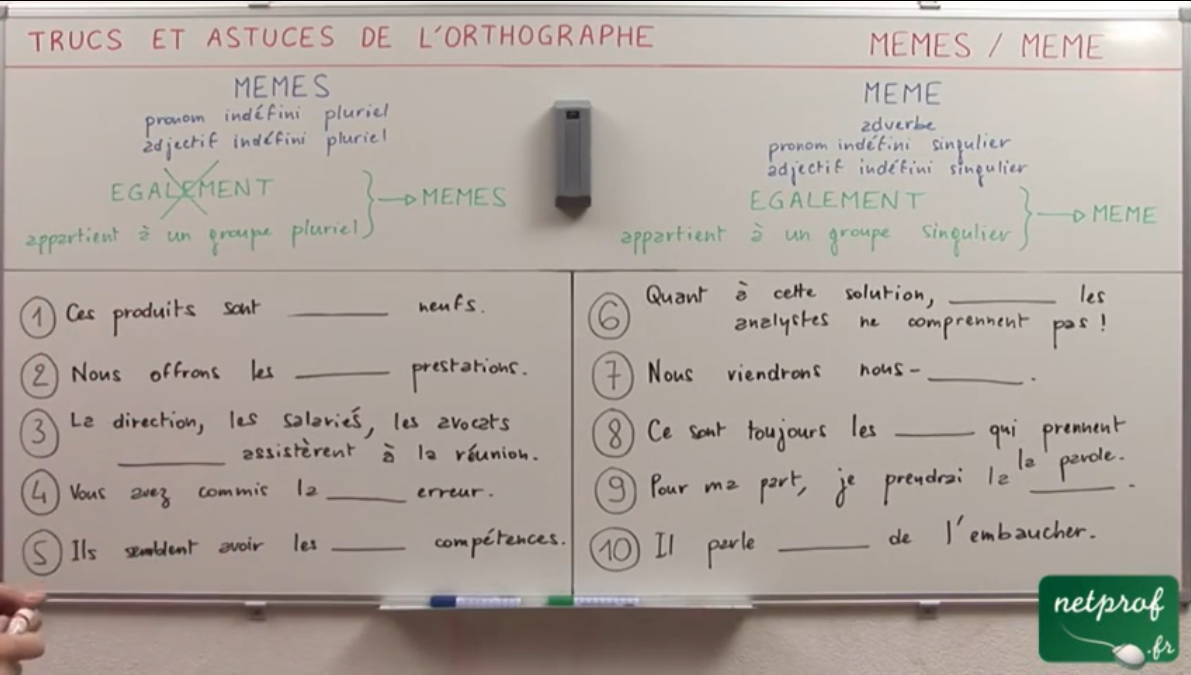 TRUCS ET ASTUCES DE L'ORTHOGRAPHE
MEMES / MEME
MEMES
pronom indéfini pluriel
adjectif indéfini pluriel
EGALEMENT
appartient à un groupe pluriel
→ MEMES
MEME
adverbe
pronom indéfini singulier
adjectif indéfini singulier
EGALEMENT
appartient à un groupe singulier
→ MEME
1 Ces produits sont ______ neufs.
2 Nous offrons les ______ prestations.
3 La direction, les salariés, les avocats
______ assistèrent à la réunion.
4 Vous avez commis la ______ erreur.
5 Ils semblent avoir les ______ compétences.
6 Quant à cette solution, ______ les
analystes ne comprennent pas !
7 Nous viendrons nous-______.
8 Ce sont toujours les ______ qui prennent
la parole.
9 Pour ma part, je prendrai la ______.
10 Il parle ______ de l'embaucher.
netprof
.fr